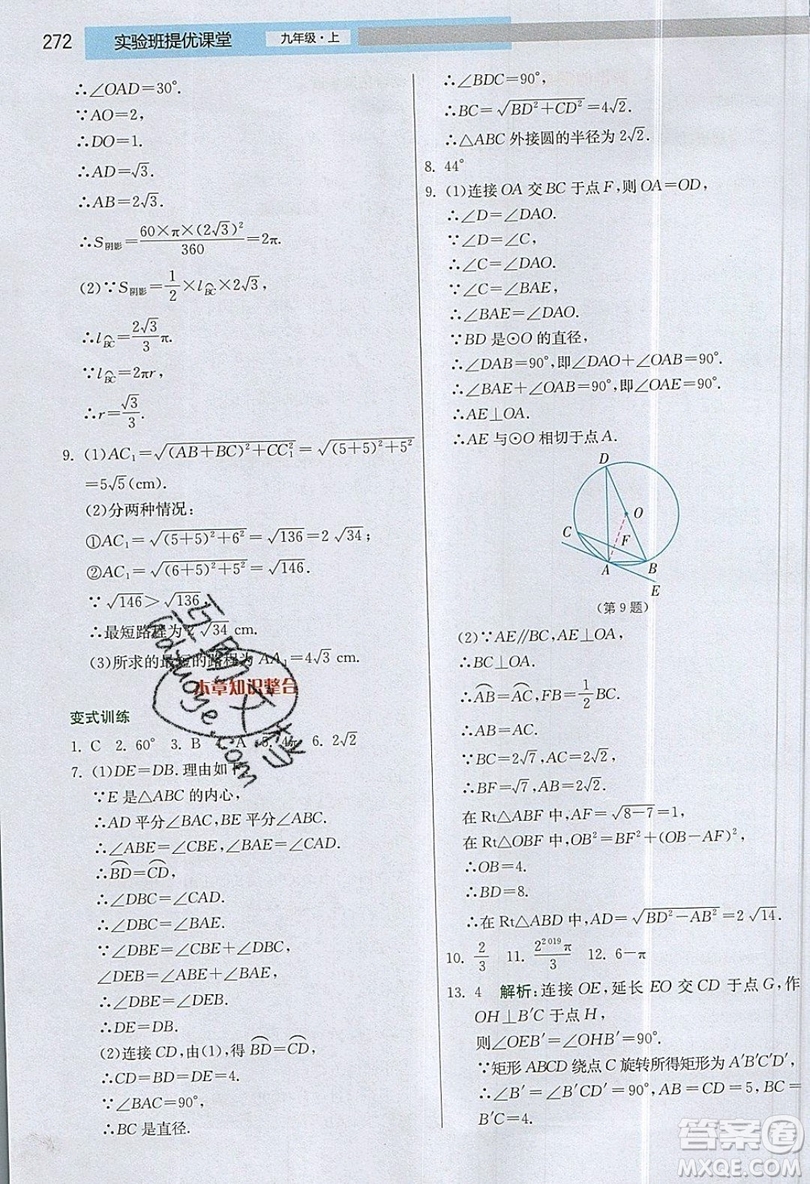 272 实验班提优课堂 九年级·上
∴∠OAD=30°.
∵AO=2,
∴DO=1.
∴AD=√3.
∴AB=2√3.
∴S阴影=60×π×(2√3)²/360=2π.
(2)∵S阴影=1/2×l⌒BC×2√3,
∴l⌒BC=2√3/3 π.
∵l⌒BC=2πr,
∴r=√3/3.
9. (1)AC₁=√((AB+BC)²+CC₁²)=√((5+5)²+5²)
=5√5(cm).
(2)分两种情况:
①AC₁=√((5+5)²+6²)=√136=2√34;
②AC₁=√((6+5)²+5²)=√146.
∵√146>√136,
∴最短路程为2√34 cm.
(3)所求的最短的路程为AA₁=4√3 cm.
本章知识整合
变式训练
1. C 2. 60° 3. B A 5. 4π 6. 2√2
7. (1)DE=DB. 理由如
∵E是△ABC的内心,
∴AD平分∠BAC,BE平分∠ABC.
∴∠ABE=∠CBE,∠BAE=∠CAD.
∴⌒BD=⌒CD.
∴∠DBC=∠CAD.
∴∠DBC=∠BAE.
∵∠DBE=∠CBE+∠DBC,
∠DEB=∠ABE+∠BAE,
∴∠DBE=∠DEB.
∴DE=DB.
(2)连接CD,由(1),得⌒BD=⌒CD,
∴CD=BD=DE=4.
∵∠BAC=90°,
∴BC是直径.
∴∠BDC=90°.
∴BC=√(BD²+CD²)=4√2.
∴△ABC外接圆的半径为2√2.
8. 44°
9. (1)连接OA交BC于点F,则OA=OD,
∴∠D=∠DAO.
∵∠D=∠C,
∴∠C=∠DAO.
∵∠BAE=∠C,
∴∠BAE=∠DAO.
∵BD是⊙O的直径,
∴∠DAB=90°,即∠DAO+∠OAB=90°.
∴∠BAE+∠OAB=90°,即∠OAE=90°.
∴AE⊥OA.
∴AE与⊙O相切于点A.
D
O
C
F
A
B
E
(第9题)
(2)∵AE∥BC,AE⊥OA,
∴OA⊥BC.
∴⌒AB=⌒AC,FB=1/2BC.
∴AB=AC.
∵BC=2√7,AC=2√2,
∴BF=√7,AB=2√2.
在Rt△ABF中,AF=√(8-7)=1,
在Rt△OFB中,OB²=BF²+(OB-AF)²,
∴OB=4.
∴BD=8.
∴在Rt△ABD中,AD=√(BD²-AB²)=2√14.
10. 2/3 11. 2²⁰¹⁹π/3 12. 6-π
13. 4 解析:连接OE,延长EO交CD于点G,作
OH⊥B′C于点H,
则∠OEB′=∠OHB′=90°.
∵矩形ABCD绕点C旋转所得矩形为A′B′C′D′,
∴∠B′=∠B′CD′=90°,AB=CD=5,BC=
B′C=4.
答案圈
MXQE.COM